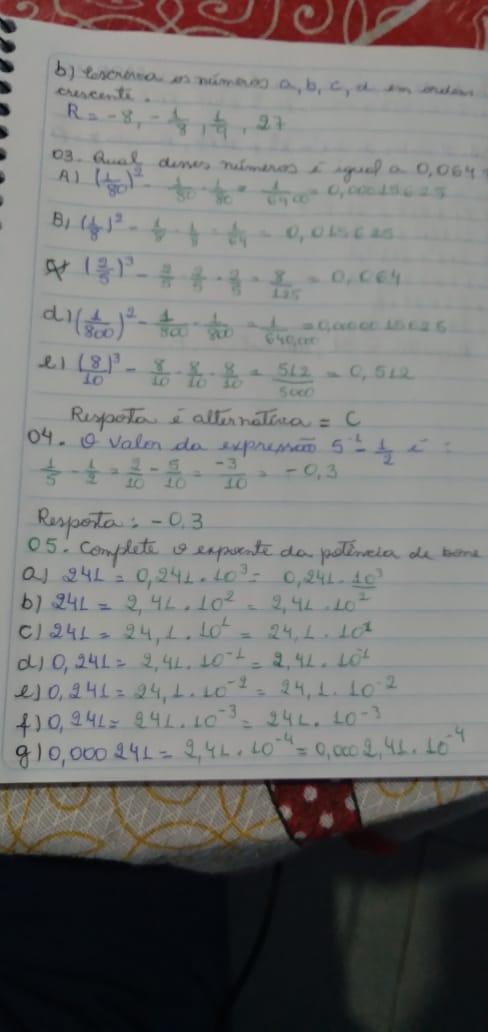 b) Escreva os números a, b, c, d em ordem
crescente.
R = -8, -1/8, 1/9, 27
03. Qual desses números é igual a 0,064?
A) (1/80)² - 1/80 · 1/80 = 1/6400 = 0,00015625
B) (1/8)² - 1/8 · 1/8 = 1/64 = 0,015625
(2/5)³ - 2/5 · 2/5 · 2/5 = 8/125 = 0,064
d) (1/800)² - 1/800 · 1/800 = 1/640,000 = 0,0000015625
e) (8/10)³ - 8/10 · 8/10 · 8/10 = 512/5000 = 0,512
Resposta é alternativa = C
04. O Valor da expressão 5⁻¹ - 1/2 é :
1/5 - 1/2 = 2/10 - 5/10 = -3/10 = -0,3
Resposta: -0,3
05. Complete o expoente da potência de
a) 241 = 0,241 . 10³ = 0,241 . 10³
b) 241 = 2,41 . 10² = 2,41 . 10²
c) 241 = 24,1 . 10¹ = 24,1 . 10¹
d) 0,241 = 2,41 . 10⁻¹ = 2,41 . 10⁻¹
e) 0,241 = 24,1 . 10⁻² = 24,1 . 10⁻²
f) 0,241 = 241 . 10⁻³ = 241 . 10⁻³
g) 0,000241 = 2,41 . 10⁻⁴ = 0,0002,41 . 10⁻⁴